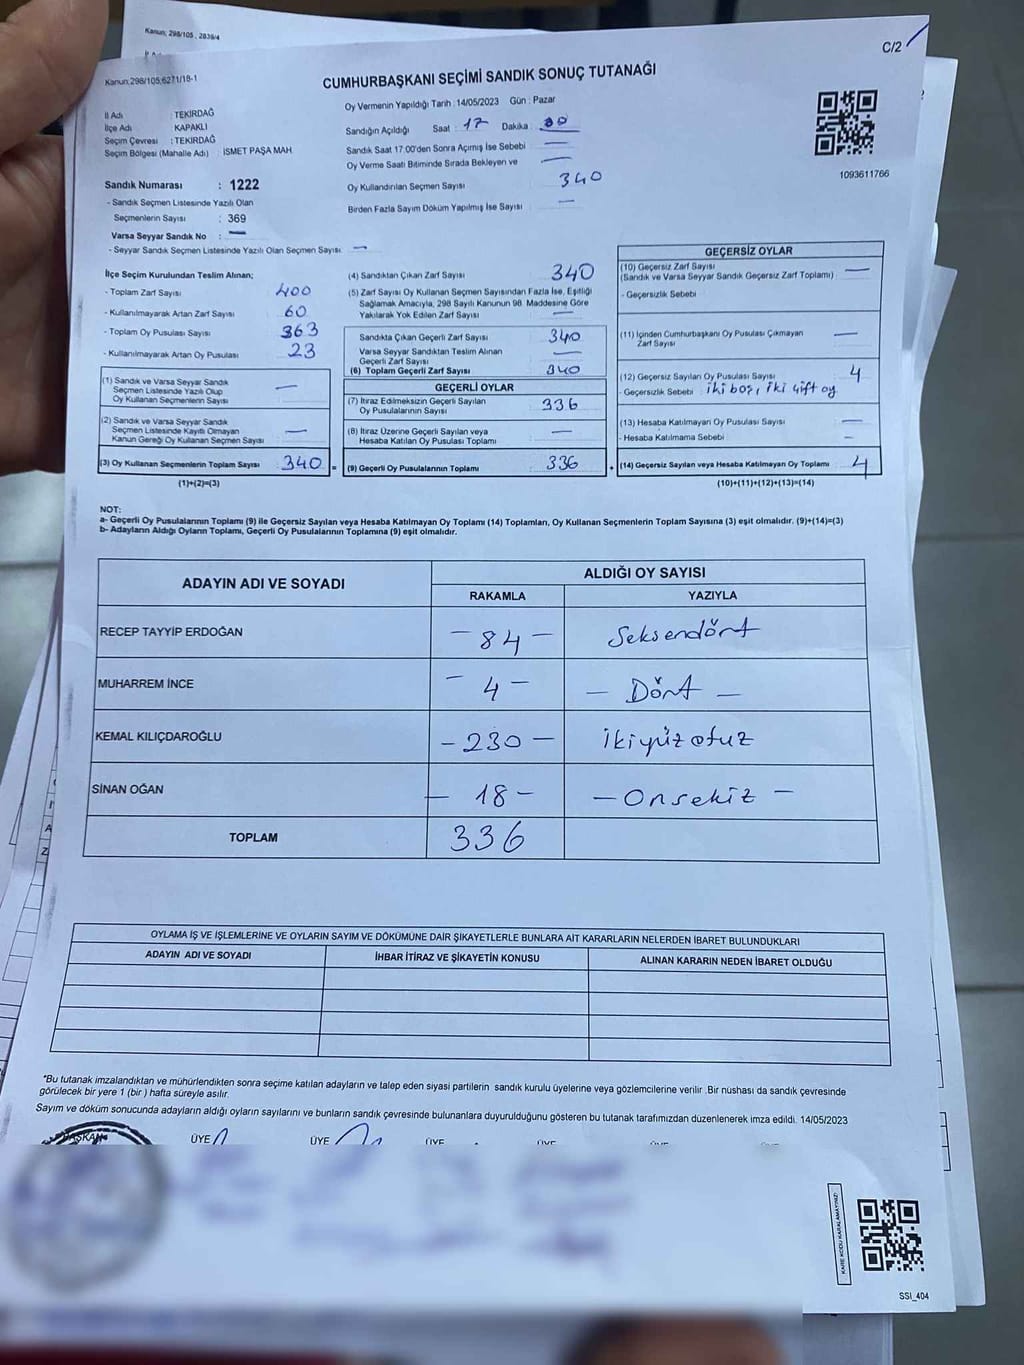 Kanun; 298/105 , 2839/4
Kanun;298/105;6271/18-1
C/2
CUMHURBAŞKANI SEÇİMİ SANDIK SONUÇ TUTANAĞI
İl Adı : TEKİRDAĞ
İlçe Adı : KAPAKLI
Seçim Çevresi : TEKİRDAĞ
Seçim Bölgesi (Mahalle Adı) : İSMET PAŞA MAH
Sandık Numarası : 1222
- Sandık Seçmen Listesinde Yazılı Olan
Seçmenlerin Sayısı : 369
Varsa Seyyar Sandık No : —
- Seyyar Sandık Seçmen Listesinde Yazılı Olan Seçmen Sayısı: —
Oy Vermenin Yapıldığı Tarih :14/05/2023 Gün : Pazar
Sandığın Açıldığı Saat : 17 Dakika : 00
Sandık Saat 17:00'den Sonra Açımış İse Sebebi —
Oy Verme Saati Bitiminde Sırada Bekleyen ve —
Oy Kullandırılan Seçmen Sayısı 340
Birden Fazla Sayım Döküm Yapılmış İse Sayısı —
1093611766
İlçe Seçim Kurulundan Teslim Alınan;
- Toplam Zarf Sayısı 400
- Kullanılmayarak Artan Zarf Sayısı 60
- Toplam Oy Pusulası Sayısı 363
- Kullanılmayarak Artan Oy Pusulası 23
(1) Sandık ve Varsa Seyyar Sandık
Seçmen Listesinde Yazılı Olup
Oy Kullanan Seçmenlerin Sayısı —
(2) Sandık ve Varsa Seyyar Sandık
Seçmen Listesinde Kayıtlı Olmayan
Kanun Gereği Oy Kullanan Seçmen Sayısı —
(3) Oy Kullanan Seçmenlerin Toplam Sayısı 340
(1)+(2)=(3)
(4) Sandıktan Çıkan Zarf Sayısı 340
(5) Zarf Sayısı Oy Kullanan Seçmen Sayısından Fazla İse, Eşitliği
Sağlamak Amacıyla, 298 Sayılı Kanunun 98. Maddesine Göre
Yakılarak Yok Edilen Zarf Sayısı —
Sandıkta Çıkan Geçerli Zarf Sayısı 340
Varsa Seyyar Sandıktan Teslim Alınan
Geçerli Zarf Sayısı —
(6) Toplam Geçerli Zarf Sayısı 340
GEÇERLİ OYLAR
(7) İtiraz Edilmeksizin Geçerli Sayılan
Oy Pusulalarının Sayısı 336
(8) İtiraz Üzerine Geçerli Sayılan veya
Hesaba Katılan Oy Pusulası Toplamı —
= (9) Geçerli Oy Pusulalarının Toplamı 336
GEÇERSİZ OYLAR
(10) Geçersiz Zarf Sayısı
(Sandık ve Varsa Seyyar Sandık Geçersiz Zarf Toplamı) —
- Geçersizlik Sebebi
(11) İçinden Cumhurbaşkanı Oy Pusulası Çıkmayan
Zarf Sayısı —
(12) Geçersiz Sayılan Oy Pusulası Sayısı 4
- Geçersizlik Sebebi iki boş, iki çift oy
(13) Hesaba Katılmayan Oy Pusulası Sayısı —
- Hesaba Katılmama Sebebi —
+ (14) Geçersiz Sayılan veya Hesaba Katılmayan Oy Toplamı 4
(10)+(11)+(12)+(13)=(14)
NOT:
a- Geçerli Oy Pusulalarının Toplamı (9) ile Geçersiz Sayılan veya Hesaba Katılmayan Oy Toplamı (14) Toplamları, Oy Kullanan Seçmenlerin Toplam Sayısına (3) eşit olmalıdır. (9)+(14)=(3)
b- Adayların Aldığı Oyların Toplamı, Geçerli Oy Pusulalarının Toplamına (9) eşit olmalıdır.
ADAYIN ADI VE SOYADI
ALDIĞI OY SAYISI
RAKAMLA YAZIYLA
RECEP TAYYİP ERDOĞAN - 84 - Seksendört
MUHARREM İNCE - 4 - - Dört -
KEMAL KILIÇDAROĞLU - 230 - ikiyüz otuz
SİNAN OĞAN - 18 - - Onsekiz -
TOPLAM 336
OYLAMA İŞ VE İŞLEMLERİNE VE OYLARIN SAYIM VE DÖKÜMÜNE DAİR ŞİKAYETLERLE BUNLARA AİT KARARLARIN NELERDEN İBARET BULUNDUKLARI
ADAYIN ADI VE SOYADI İHBAR İTİRAZ VE ŞİKAYETİN KONUSU ALINAN KARARIN NEDEN İBARET OLDUĞU
*Bu tutanak imzalandıktan ve mühürlendikten sonra seçime katılan adayların ve talep eden siyasi partilerin sandık kurulu üyelerine veya gözlemcilerine verilir .Bir nüshası da sandık çevresinde
görülecek bir yere 1 (bir ) hafta süreyle asılır.
Sayım ve döküm sonucunda adayların aldığı oyların sayılarını ve bunların sandık çevresinde bulunanlara duyurulduğunu gösteren bu tutanak tarafımızdan düzenlenerek imza edildi. 14/05/2023
BAŞKAN ÜYE ÜYE ÜYE ÜYE
KARE KODU KARALAMAYINIZ!
SSI_404